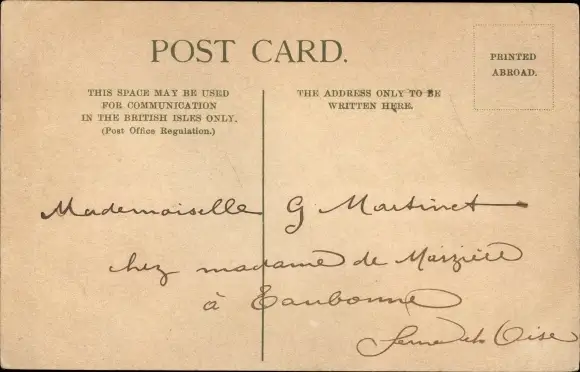 POST CARD.
PRINTED
ABROAD.
THIS SPACE MAY BE USED
FOR COMMUNICATION
IN THE BRITISH ISLES ONLY.
(Post Office Regulation.)
THE ADDRESS ONLY TO BE
WRITTEN HERE.
Mademoiselle G Martinet
chez madame de Mézière
à Eaubonne
Seine et Oise